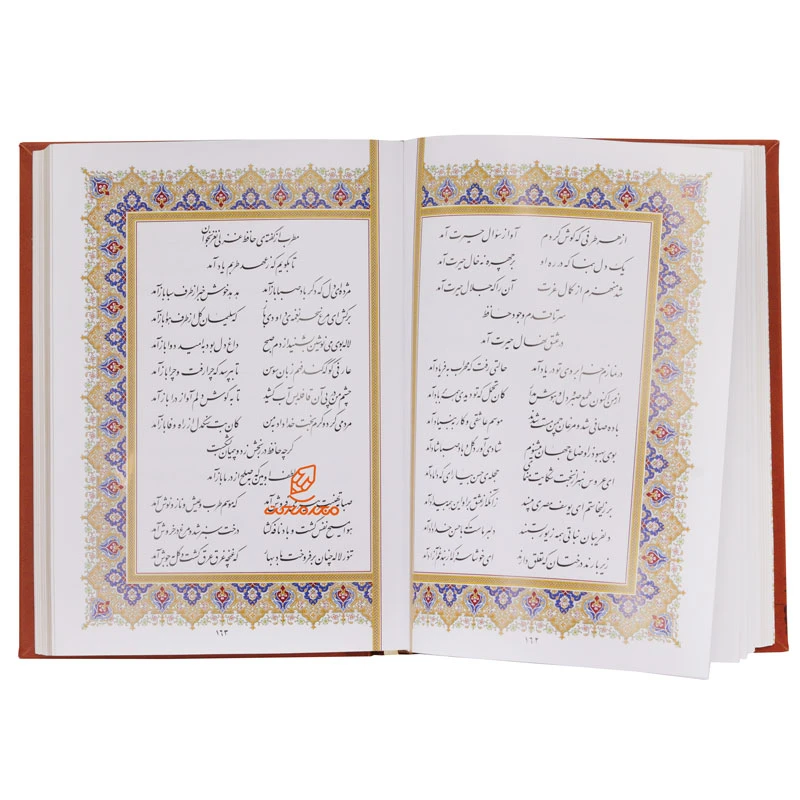 از هر طرفی که گوش کردم آواز سؤال حیرت آمد
یک دل بنما که در ره او بر چهره نه خال حیرت آمد
شد منهزم از کمال عزت آن را که جلال حیرت آمد
سر تا قدم وجود حافظ
در عشق نهال حیرت آمد
در نمازم خم ابروی تو در یاد آمد حالتی رفت که محراب به فریاد آمد
از من اکنون طمع صبر و دل و هوش مدار کان تحمل که تو دیدی همه بر باد آمد
باده صافی شد و مرغان چمن مست شدند موسم عاشقی و کار به بنیاد آمد
بوی بهبود ز اوضاع جهان می‌شنوم شادی آورد گل و باد صبا شاد آمد
ای عروس هنر از بخت شکایت منما حجله‌ی حسن بیارای که داماد آمد
بر زلیخا ستم ای یوسف مصری مپسند زانکه از عشق بر او این همه بیداد آمد
دلفریبان نباتی همه زیور بستند دلبر ماست که با حسن خداداد آمد
زیر بارند درختان که تعلق دارند ای خوشا سرو که از بار غم آزاد آمد
۱۶۲
مطرب از گفته‌ی حافظ غزلی نغز بخوان
تا بگویم که ز عهد طربم یاد آمد
مژده ای دل که دگر باد صبا باز آمد هدهد خوش خبر از طرف سبا باز آمد
برکش ای مرغ سحر نغمه‌ی داودی را که سلیمان گل از طرف هوا باز آمد
لاله بوی می نوشین بشنید از دم صبح داغ دل بود به امید دوا باز آمد
عارفی کو که کند فهم زبان سوسن تا بپرسد که چرا رفت و چرا باز آمد
چشم من در پی آن قافله بس آب کشید تا به گوش دلم آواز درا باز آمد
مردمی کرد و کرم بخت خداداد به من کان بت سنگدل از راه وفا باز آمد
گرچه حافظ در رنجش زد و پیمان بشکست
لطف او بین که به صلح از در ما باز آمد
صبا به تهنیت پیر می فروش آمد که موسم طرب و عیش و ناز و نوش آمد
هوا مسیح نفس گشت و باد نافه گشا درخت سبز شد و مرغ در خروش آمد
تنور لاله چنان برفروخت باد بهار که غنچه غرق عرق گشت و گل به جوش آمد
۱۶۳